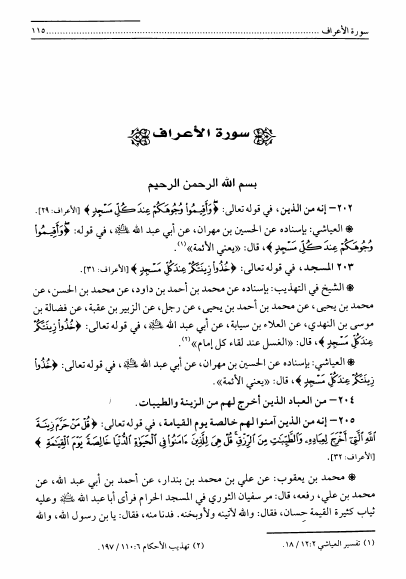 سورة الأعراف ........................................................ ١١٥
سورة الأعراف
بسم الله الرحمن الرحيم
٢٠٢- إنه من الذين، في قوله تعالى: ﴿وَأَقِيمُوا وُجُوهَكُمْ عِندَ كُلِّ مَسْجِدٍ﴾ [الأعراف: ٢٩].
* العياشي: بإسناده عن الحسين بن مهران، عن أبي عبد الله عليه السلام، في قوله: ﴿وَأَقِيمُوا
وُجُوهَكُمْ عِندَ كُلِّ مَسْجِدٍ﴾، قال: «يعني الأئمة»(١).
٢٠٣ المسجد، في قوله تعالى: ﴿خُذُوا زِينَتَكُمْ عِندَ كُلِّ مَسْجِدٍ﴾ [الأعراف: ٣١].
* الشيخ في التهذيب: بإسناده عن محمد بن أحمد بن داود، عن محمد بن الحسن، عن
محمد بن يحيى، عن محمد بن أحمد بن يحيى، عن رجل، عن الزبير بن عقبة، عن فضالة بن
موسى بن النهدي، عن العلاء بن سيابة، عن أبي عبد الله عليه السلام، في قوله تعالى: ﴿خُذُوا زِينَتَكُمْ
عِندَ كُلِّ مَسْجِدٍ﴾، قال: «الغسل عند لقاء كل إمام»(٢).
* العياشي: بإسناده عن الحسين بن مهران، عن أبي عبد الله عليه السلام، في قوله تعالى: ﴿خُذُوا
زِينَتَكُمْ عِندَ كُلِّ مَسْجِدٍ﴾، قال: «يعني الأئمة».
٢٠٤- من العباد الذين أخرج لهم من الزينة والطيبات.
٢٠٥- إنه من الذين آمنوا لهم خالصة يوم القيامة، في قوله تعالى: ﴿قُلْ مَنْ حَرَّمَ زِينَةَ
اللَّهِ الَّتِي أَخْرَجَ لِعِبَادِهِ وَالطَّيِّبَاتِ مِنَ الرِّزْقِ قُلْ هِيَ لِلَّذِينَ ءَامَنُوا فِي الْحَيَوٰةِ الدُّنْيَا خَالِصَةً يَوْمَ الْقِيَٰمَةِ﴾
[الأعراف: ٣٢].
* محمد بن يعقوب: عن علي بن محمد بن بندار، عن أحمد بن أبي عبد الله، عن
محمد بن علي، رفعه، قال: مر سفيان الثوري في المسجد الحرام فرأى أبا عبد الله عليه السلام وعليه
ثياب كثيرة القيمة حِسان، فقال: والله لآتينه ولأوبخنه. فدنا منه، فقال: يا بن رسول الله، والله
(١) تفسير العياشي ١٢:٢ / ١٨. (٢) تهذيب الأحكام ١١٠:٦ / ١٩٧.